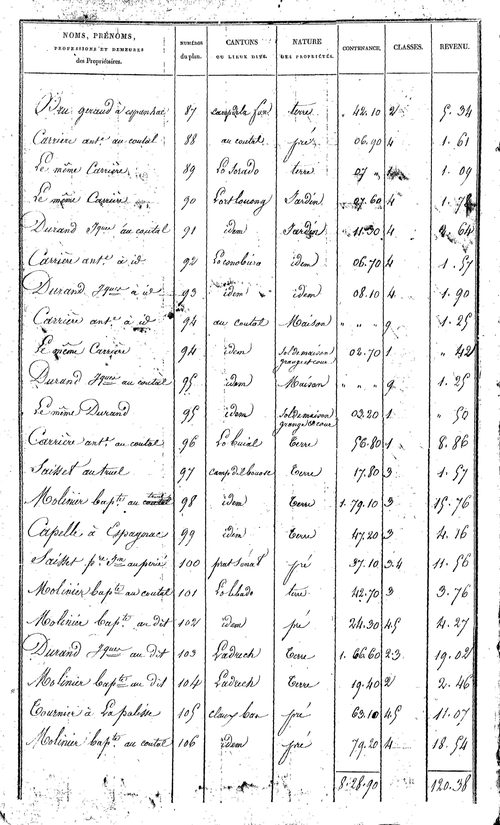 NOMS, PRÉNOMS, PROFESSIONS ET DEMEURES des Propriétaires. NUMÉROS du plan. CANTONS OU LIEUX DITS. NATURE DES PROPRIÉTÉS. CONTENANCE. CLASSES. REVENU.
geraud à espanhac 87 camp de la fon terre " 42.10 2 5. 34
Carrière ant.e au coutal 88 au coutal pré 06.90 4 1. 61
Le même Carrière 89 terre 07 " 1 1. 09
Le même Carrière 90 Jardin 07.60 4 1. 78
Durand Jques au coutal 91 idem Jardin 11.30 4 2. 64
Carrière ant.e à id 92 idem 06.70 4 1. 57
Durand Jques à id 93 idem idem 08.10 4 1. 90
Carrière ant.e à id 94 au coutal Maison " " " 9 1. 25
Le même Carrière 94 idem sol de maison grange et cour 02.70 1 " 42
Durand Jques au coutal 95 idem Maison " " " 9 1. 25
Le même Durand 95 idem sol de maison grange et cour 03.20 1 " 50
Carrière ant.e au coutal 96 Terre 56.80 1 8. 86
Saisset au truel 97 Terre 17.80 3 1. 57
Molinier bap.te au 98 idem Terre 1. 79.10 3 15. 76
Capelle à Espagnac 99 idem Terre 47.20 3 4. 16
Saisset 100 pré 37.10 3.4 11. 56
Molinier bap.te au coutal 101 terre 42.70 3 3. 76
Molinier bap.te au dit 102 idem pré 24.30 4.5 4. 27
Durand Jques au dit 103 Ladrech Terre 1. 66.60 2.3 19. 02
Molinier bap.te au dit 104 Ladrech Terre 19.40 2 2. 46
Tournier à La palisse 105 pré 63.10 4.5 11. 07
Molinier bap.te au coutal 106 idem pré 79.20 4 18. 54
8. 28. 90 120. 38